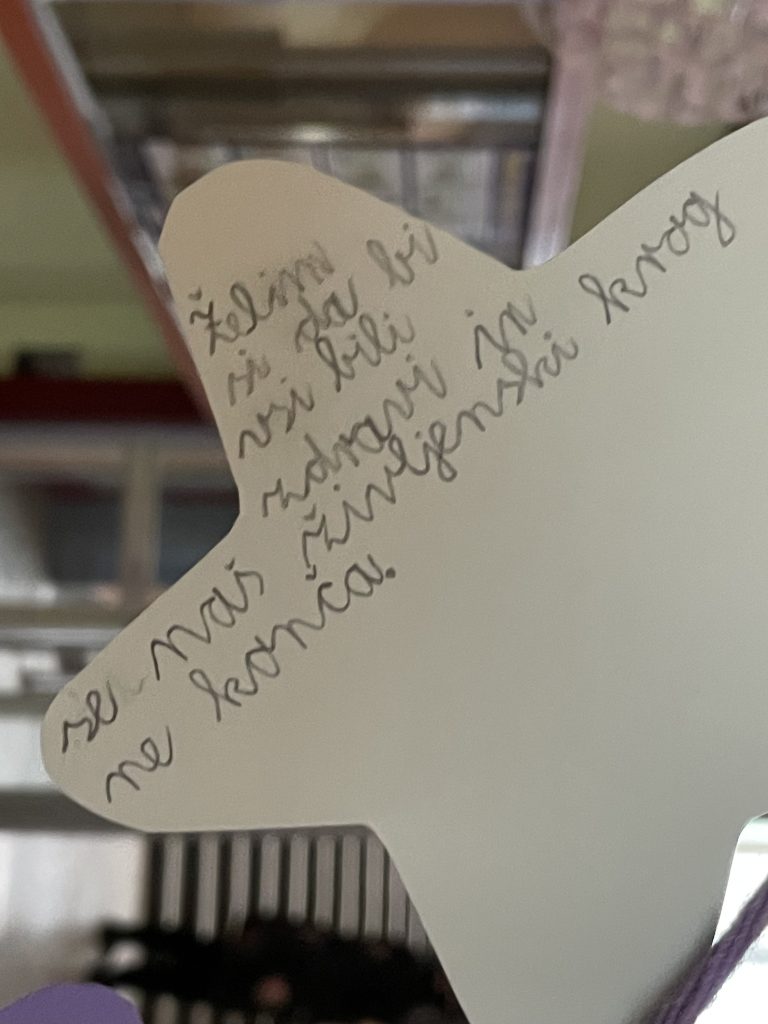 želim
si da bi
vsi bili
zdravi in
se naš življenski krog
ne konča.